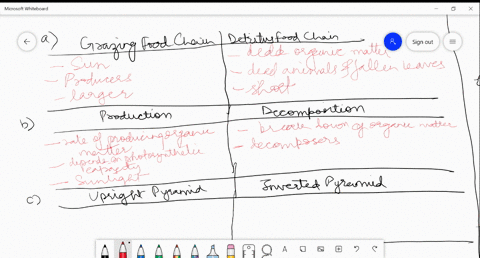 Microsoft Whiteboard
Sign out
a) Grazing Food Chain Detritus Food Chain
- Sun
- Producers
- larger
- dead organic matter
- dead animals & fallen leaves
- short
b) Production Decomposition
- rate of producing organic
matter
- depends on photosynthetic
capacity
- Sunlight
- break down of organic matter
- decomposers
c) Upright Pyramid Inverted Pyramid